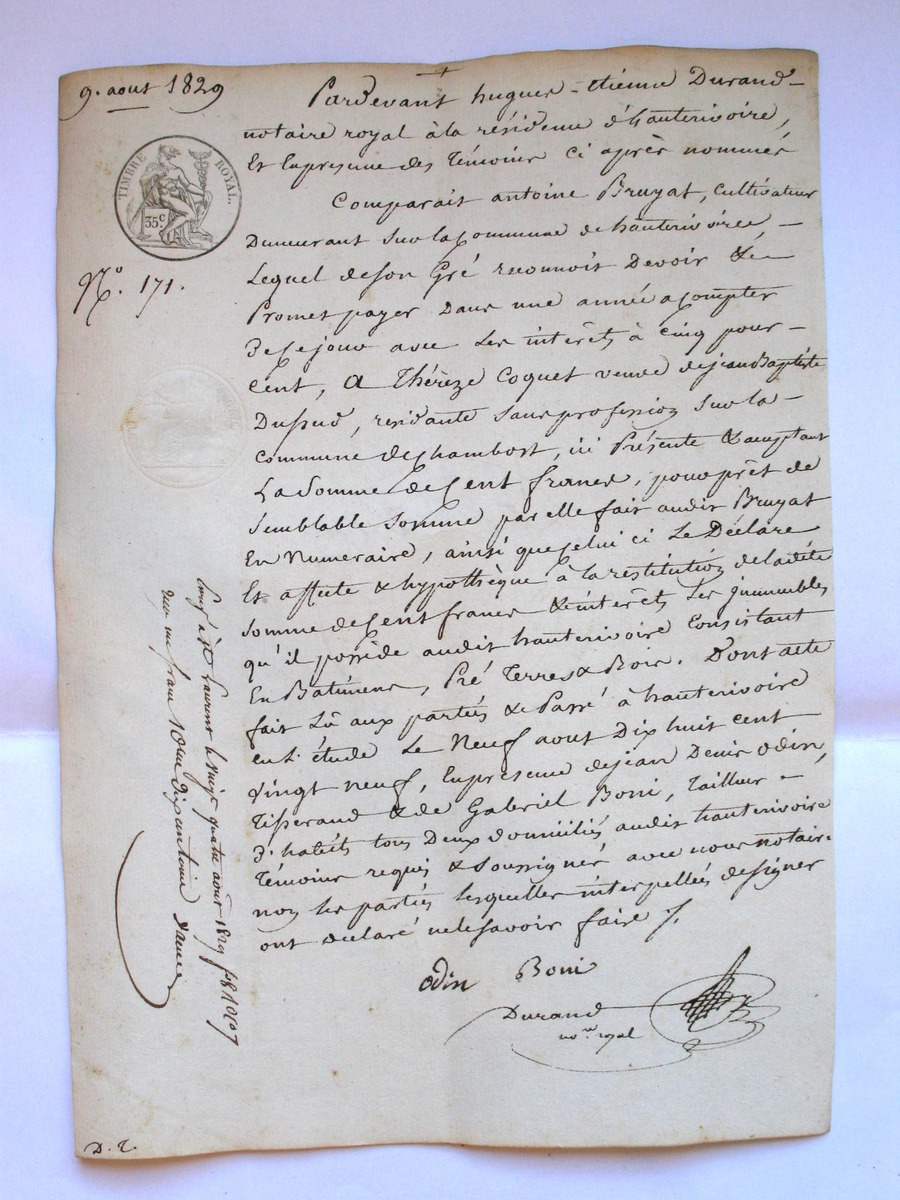 9. aout 1829
TIMBRE ROYAL.
35c.
N.o 171.
Pardevant hugues-étienne Durand
notaire royal à la résidence d'hauterivoire,
Et En présence des Témoins ci après nommés
Comparait antoine Bruyat, cultivateur
Demeurant sur la Commune de hauterivoire,
Lequel de son Gré reconnoit Devoir &
Promet payer Dans une année a Compter
De ce jour avec Les intérêts à cinq pour
Cent, A Thérèze Coquet veuve de jean Baptiste
Dussud, residante sans profession sur la
Commune de Chambost, ici Présente & acceptant
La Somme de Cent francs, pour prêt de
Semblable Somme par elle fait audit Bruyat
En Numeraire, ainsi que Celui ci Le Déclare
Et affecte & hypothèque à la restitution de ladite
Somme de Cent francs & intérêts Les immeubles
qu'il possède audit hauterivoire Consistant
En Batimens, Pré Terres & Bois. Dont acte
fait Lû aux parties & Passé à hauterivoire
en L'étude Le Neuf aout Dix huit cent
vingt neuf, En présence de jean Denis Odin,
Tisserand & de Gabriel Boni, Tailleur
D'habits tous Deux domiciliés audit hauterivoire
Témoins requis & Soussignés avec nous notaire
non les parties lesquelles interpellées de signer
ont declaré ne le savoir faire
odin Boni
Durand
nore royal
St Laurent le vingt quatre août 1829
un franc 10 cs Dix
D. T.